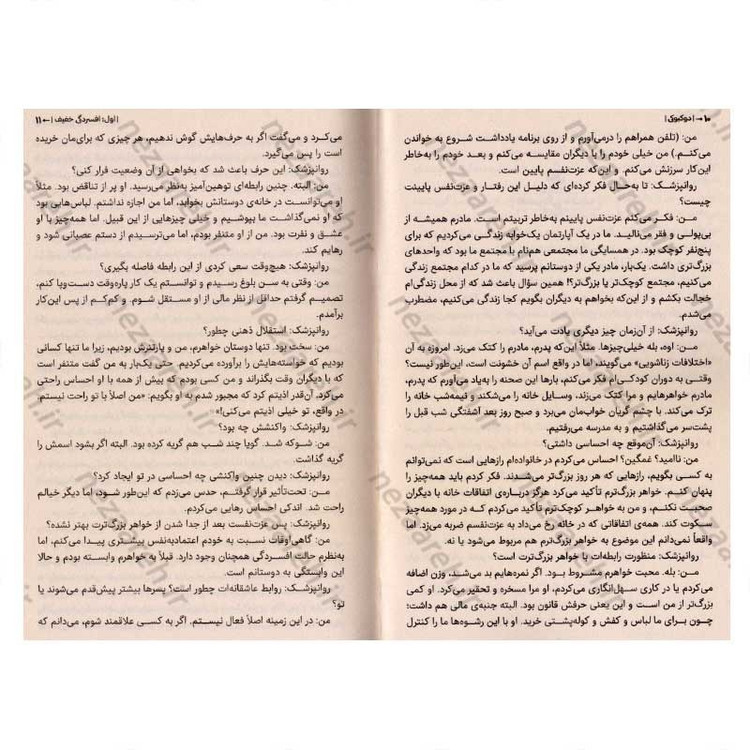 ۱۰ → | دوکبوکی |
من: (تلفن همراهم را درمی‌آورم و از روی برنامه یادداشت شروع به خواندن
می‌کنم.) من خیلی خودم را با دیگران مقایسه می‌کنم و بعد خودم را به‌خاطر
این‌کار سرزنش می‌کنم. و این‌که عزت‌نفسم پایین است.
روانپزشک: تا به‌حال فکر کرده‌ای که دلیل این رفتار و عزت‌نفس پایینت
چیست؟
من: فکر می‌کنم عزت‌نفس پایینم به‌خاطر تربیتم است. مادرم همیشه از
بی‌پولی و فقر می‌نالید. ما در یک آپارتمان یک‌خوابه زندگی می‌کردیم که برای
پنج‌نفر کوچک بود. در همسایگی ما مجتمعی هم‌نام با مجتمع ما بود که واحدهای
بزرگ‌تری داشت. یک‌بار، مادر یکی از دوستانم پرسید که ما در کدام مجتمع زندگی
می‌کنیم، مجتمع کوچک‌تر یا بزرگ‌تر؟! همین سؤال باعث شد که از محل زندگی‌ام
خجالت بکشم و از این‌که بخواهم به دیگران بگویم کجا زندگی می‌کنیم، مضطرب
می‌شدم.
روانپزشک: از آن‌زمان چیز دیگری یادت می‌آید؟
من: اوه، بله خیلی‌چیزها. مثلاً این‌که پدرم، مادرم را کتک می‌زد. امروزه به آن
«اختلافات زناشویی» می‌گویند، اما در واقع اسم آن خشونت است، این‌طور نیست؟
وقتی به دوران کودکی‌ام فکر می‌کنم، بارها این صحنه را به‌یاد می‌آورم که پدرم،
مادرم خواهرهایم و مرا کتک می‌زند، وسایل خانه را می‌شکند و نیمه‌شب خانه را
ترک می‌کند. با چشم گریان خواب‌مان می‌برد و صبح روز بعد آشفتگی شب قبل را
پشت‌سر می‌گذاشتیم و به مدرسه می‌رفتیم.
روانپزشک: آن‌موقع چه احساسی داشتی؟
من: ناامید؟ غمگین؟ احساس می‌کردم در خانواده‌ام رازهایی است که نمی‌توانم
به کسی بگویم، رازهایی که هر روز بزرگ‌تر می‌شدند. فکر کردم باید همه‌چیز را
پنهان کنم. خواهر بزرگ‌ترم تأکید می‌کرد هرگز درباره‌ی اتفاقات خانه با دیگران
صحبت نکنم، و من به خواهر کوچک‌ترم تأکید می‌کردم که در مورد همه‌چیز
سکوت کند. همه‌ی اتفاقاتی که در خانه رخ می‌داد به عزت‌نفسم ضربه می‌زد. اما
واقعاً نمی‌دانم این موضوع به خواهر بزرگ‌ترم هم مربوط می‌شود یا نه.
روانپزشک: منظورت رابطه‌ات با خواهر بزرگ‌ترت است؟
من: بله. محبت خواهرم مشروط بود. اگر نمره‌هایم بد می‌شد، وزن اضافه
می‌کردم یا در کاری سهل‌انگاری می‌کردم، او مرا مسخره و تحقیر می‌کرد. او کمی
بزرگ‌تر از من است و این یعنی حرفش قانون بود. البته جنبه‌ی مالی هم داشت؛
چون برای ما لباس و کفش و کوله‌پشتی خرید. او با این رشوه‌ها ما را کنترل
| اول: افسردگی خفیف | ← ۱۱
می‌کرد و می‌گفت اگر به حرف‌هایش گوش ندهیم، هر چیزی که برای‌مان خریده
است را پس می‌گیرد.
روانپزشک: این حرف باعث شد که بخواهی از آن وضعیت فرار کنی؟
من: البته. چنین رابطه‌ای توهین‌آمیز به‌نظر می‌رسید. او پر از تناقض بود. مثلاً
او می‌توانست در خانه‌ی دوستانش بخوابد، اما من اجازه نداشتم. لباس‌هایی بود
که او نمی‌گذاشت ما بپوشیم و خیلی چیزهایی از این قبیل. اما همه‌چیز با او
عشق و نفرت بود. من از او متنفر بودم، اما می‌ترسیدم از دستم عصبانی شود و
رهایم کند.
روانپزشک: هیچ‌وقت سعی کردی از این رابطه فاصله بگیری؟
من: وقتی به سن بلوغ رسیدیم و توانستم یک کار پاره‌وقت دست‌وپا کنم،
تصمیم گرفتم حداقل از نظر مالی از او مستقل شوم. و کم‌کم از پس این‌کار
برآمدم.
روانپزشک: استقلال ذهنی چطور؟
من: سخت بود. تنها دوستان خواهرم، من و پارتنرش بودیم، زیرا ما تنها کسانی
بودیم که خواسته‌هایش را برآورده می‌کردیم. حتی یک‌بار به من گفت متنفر است
که با دیگران وقت بگذراند و من کسی بودم که پیش از همه با او احساس راحتی
می‌کرد. آن‌قدر اذیتم کرد که مجبور شدم به او بگویم: «من اصلاً با تو راحت نیستم.
در واقع، تو خیلی اذیتم می‌کنی!»
روانپزشک: واکنشش چه بود؟
من: شوکه شد. گویا چند شب هم گریه کرده بود. البته اگر بشود اسمش را
گریه گذاشت.
روانپزشک: دیدن چنین واکنشی چه احساسی در تو ایجاد کرد؟
من: تحت‌تأثیر قرار گرفتم، حدس می‌زدم که این‌طور شود، اما دیگر خیالم
راحت شد. اندکی احساس رهایی می‌کردم.
روانپزشک: پس عزت‌نفست بعد از جدا شدن از خواهر بزرگ‌ترت بهتر نشده؟
من: گاهی‌اوقات نسبت به خودم اعتمادبه‌نفس بیشتری پیدا می‌کنم، اما
به‌نظرم حالت افسردگی همچنان وجود دارد. قبلاً به خواهرم وابسته بودم و حالا
این وابستگی به دوستانم است.
روانپزشک: روابط عاشقانه‌ات چطور است؟ پسرها بیشتر پیش‌قدم می‌شوند یا
تو؟
من: در این زمینه اصلاً فعال نیستم. اگر به کسی علاقمند شوم، می‌دانم که
nezzareh.ir